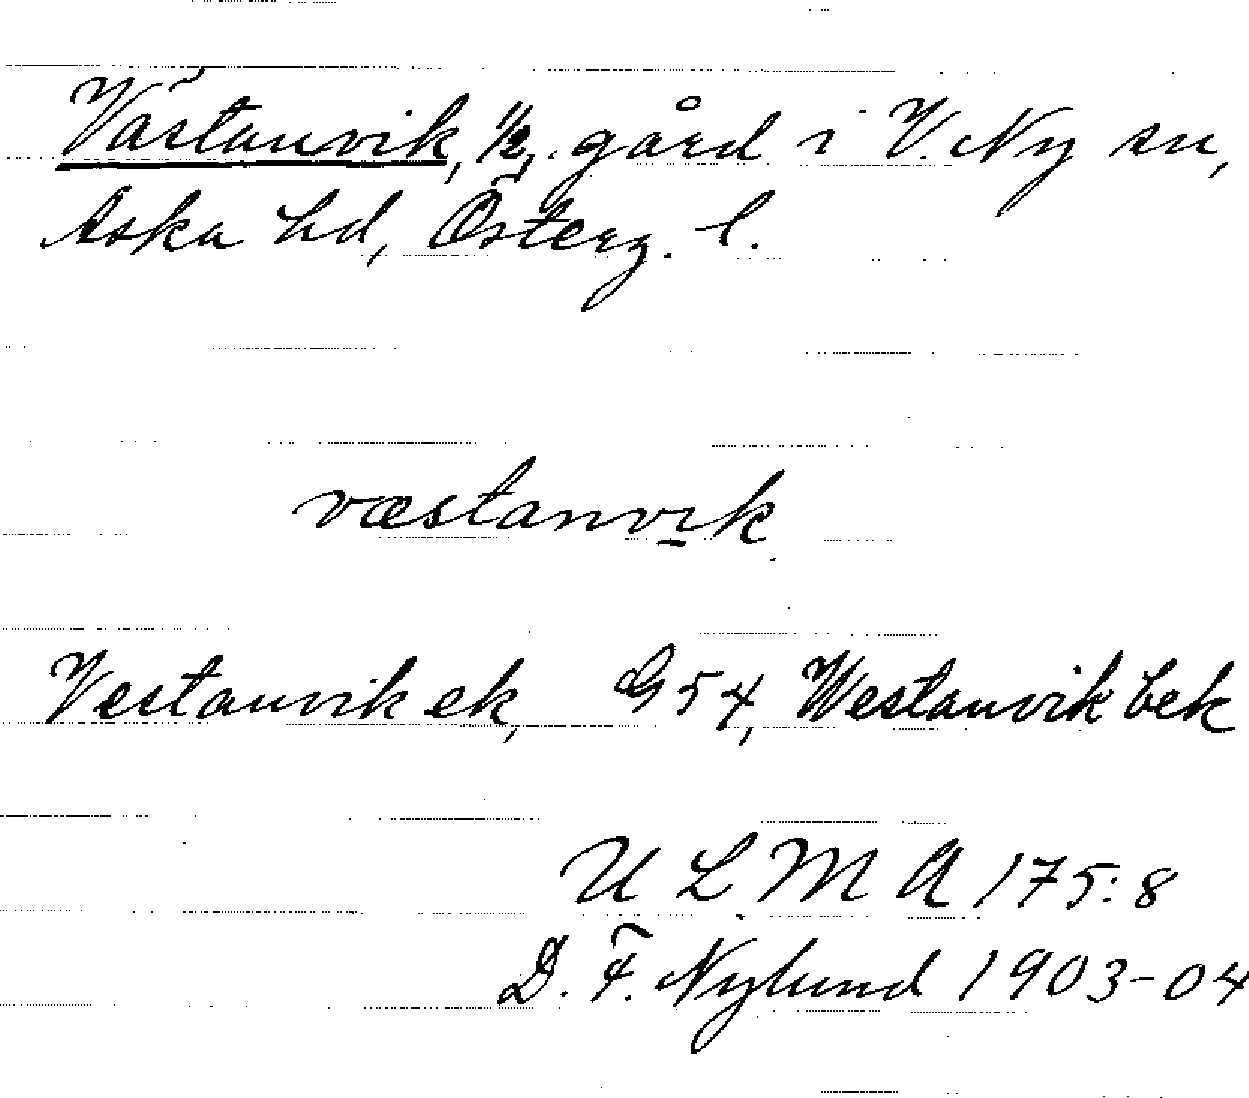 Västanvik, 1/2, gård i V. Ny sn,
Aska hd, Österg. l.
væstanvik
Vestanvik ek, G 54, Westanvik bek
U L M A 175:8
D. F. Nylund 1903-04